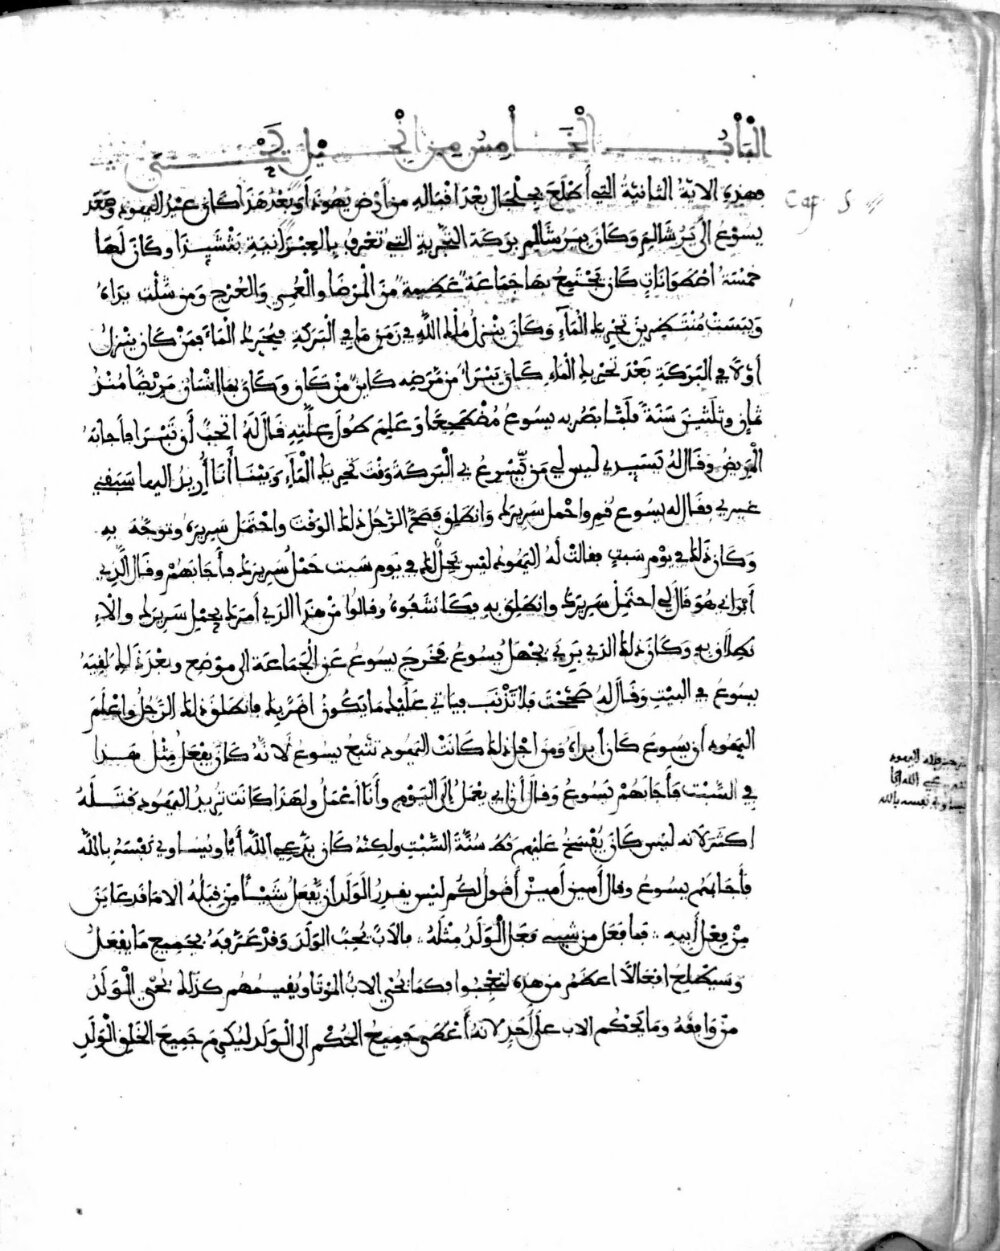 الْبَابُ الْخَامِسُ مِنْ انْجِيلِ يَحْيَى
Cap. 5
فهذه الاية الثانية التي أطلع بجلجال بعد اقباله من أرض يهوذا وبعد هذا كان عيد اليهود وصعد
يسوع الى يرشالم وكان بيرشالم بركة التجربة التي تعرف بالعبرانية وكان لها
خمسة اصطوانات كان يجتمع بها جماعة عظيمة من المرضا والعمي والعرج ومن شلت يداه
ويبست منتظرين تحريك الماء وكان ينزل ملك الله في زمن ما في البركة فيحرك الماء فمن كان ينزل
أولا في البركة بعد تحريك الماء كان يبرا من مرضه كاين من كان وكان بها انسان مريضا منذ
ثمان وثلثين سنة فلما بصر به يسوع مضطجعا وعلم طول علته قال له اتحب أن تبرا فأجابه
المريض وقال له يسيدي ليس لي من يسوع في البركة وقت تحريك الماء وبينا أنا أريد اليها سبقني
غيري فقال له يسوع قم واحمل سريرك وانطلق فصح الرجل ذلك الوقت واحتمل سريره وتوجه به
وكان ذلك في يوم سبت فقالت له اليهود ليس يحل لك في يوم سبت حمل سريرك فأجابهم وقال الذي
أبراني هو قال لي احتمل سريرك وانطلق به فكاشفوه وقالوا من هذا الذي أمرك بحمل سريرك والا
نطلاق به وكان ذلك الذي بري يجهل يسوع فخرج يسوع عن الجماعة الى موضع وبعد ذلك لقيه
يسوع في البيت وقال له صححت فلا تذنب فياتي عليك ما يكون اضر بك فانطلق ذلك الرجل واعلم
اليهود أن يسوع كان أبراه ومن اجل ذلك كانت اليهود تتبع يسوع لانه كان يفعل مثل هذا
في السبت فأجابهم يسوع وقال أن ابي يعمل الى اليوم وأنا أعمل ولهذا كانت تريد اليهود قتله
اكثر لانه ليس كان يفسخ عليهم سنة السبت ولكنه كان يدعي الله أبا ويساوي نفسه بالله
فأجابهم يسوع وقال أمين أمين أقول لكم ليس يقدر الولد أن يفعل شيئا من قبله الا ما قد عاين
من فعل أبيه فما فعل من شيء فعل الولد مثله فالاب يحب الولد وقد عرفه بجميع ما يفعل
وسيطلع افعالا اعظم من هذه لتعجبوا فكما يحيي الاب الموتا ويقيمهم كذلك يحيي الولد
من وافقه وما يحكم الاب على أحد لانه أعطى جميع الحكم الى الولد ليكرم جميع الخلق الولد